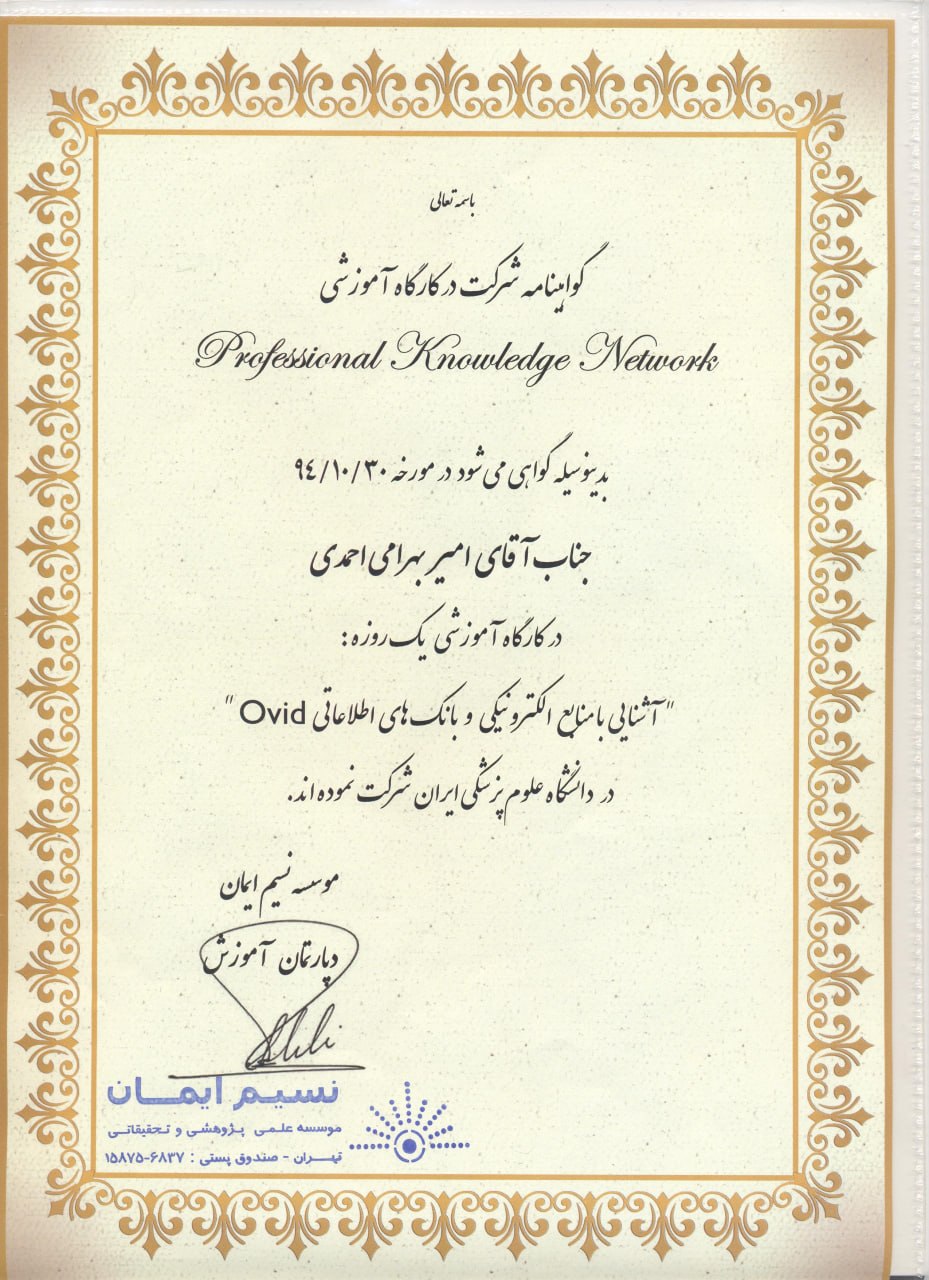 باسمه تعالی
گواهینامه شرکت در کارگاه آموزشی
Professional Knowledge Network
بدینوسیله گواهی می شود در مورخه ۹٤/۱۰/۳۰
جناب آقای امیر بهرامی احمدی
در کارگاه آموزشی یک روزه :
" آشنایی با منابع الکترونیکی و بانک های اطلاعاتی Ovid "
در دانشگاه علوم پزشکی ایران شرکت نموده اند.
موسسه نسیم ایمان
دپارتمان آموزش
نسیم ایمان
موسسه علمی پژوهشی و تحقیقاتی
تهران - صندوق پستی : ۶۸۳۷-۱۵۸۷۵